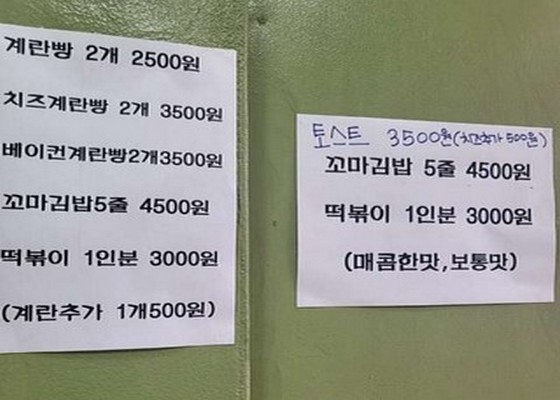 계란빵 2개 2500원
치즈계란빵 2개 3500원
베이컨계란빵2개3500원
꼬마김밥5줄 4500원
떡볶이 1인분 3000원
(계란추가 1개500원)
토스트 3500원(치즈추가 500원)
꼬마김밥 5줄 4500원
떡볶이 1인분 3000원
(매콤한맛,보통맛)